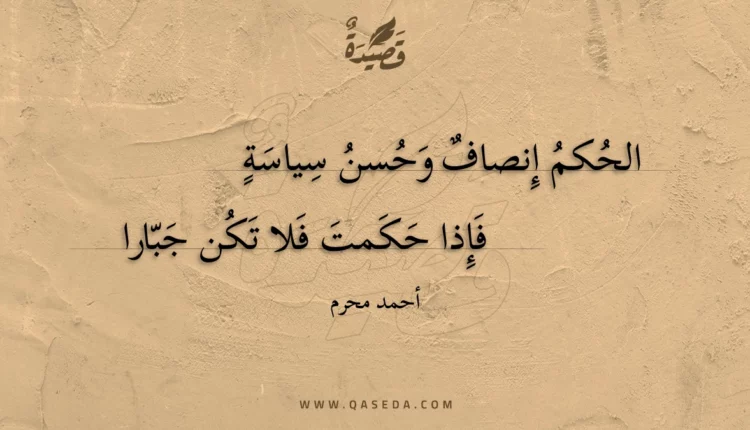 قَصِيْدَةٌ
الحُكمُ إِنصافٌ وَحُسنُ سِياسَةٍ
فَإِذا حَكَمتَ فَلا تَكُن جَبّارا
أحمد محرم
WWW.QASEDA.COM